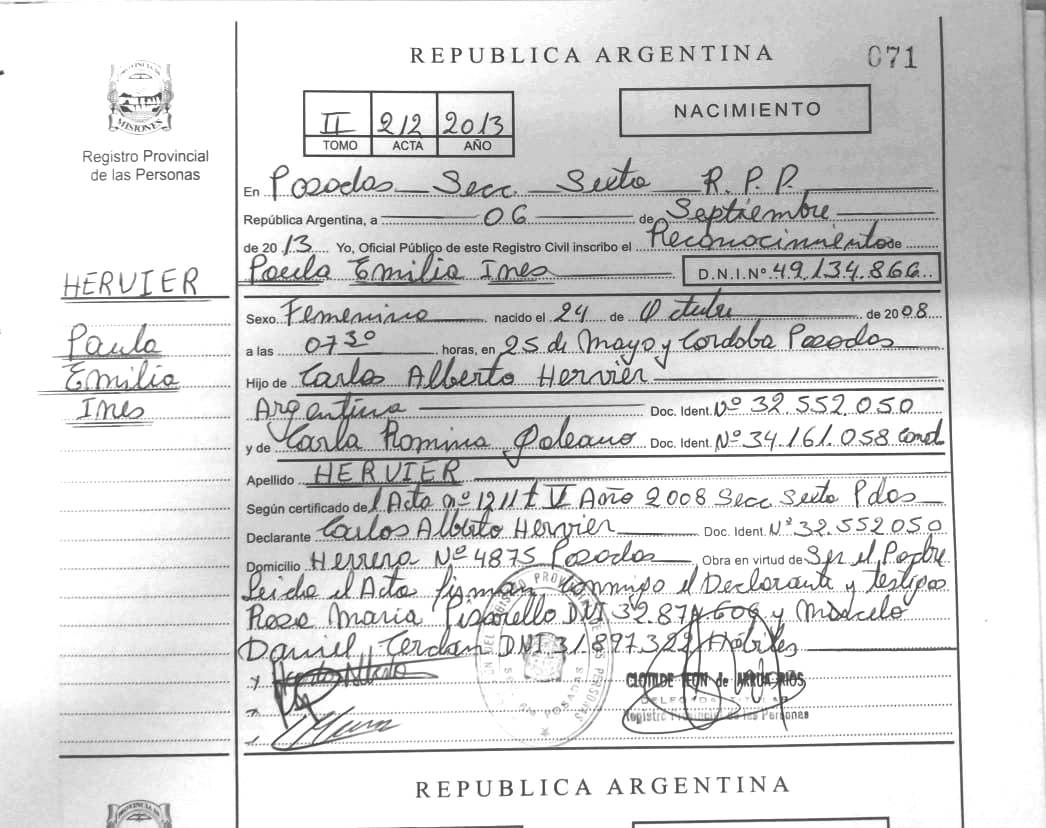 REPUBLICA ARGENTINA
071
PROVINCIA DE
MISIONES
Registro Provincial
de las Personas
II 212 2013
TOMO ACTA AÑO
NACIMIENTO
En Posadas Secc. Sexta R.P.P.
República Argentina, a 06 de Septiembre
de 2013 Yo, Oficial Público de este Registro Civil inscribo el Reconocimiento de
Paula Emilia Ines D.N.I.Nº 49.134.866
HERVIER
Paula
Emilia
Ines
Sexo Femenino nacido el 24 de Octubre de 2008.
a las 07 30 horas, en 25 de Mayo y Cordoba Posadas
Hijo de Carlos Alberto Hervier
Argentina Doc. Ident. Nº 32.552.050
y de Carla Romina Galeano Doc. Ident. Nº 34.161.058
Apellido HERVIER
Según certificado de Acta nº 1211 t V Año 2008 Secc Sexta Pdas
Declarante Carlos Alberto Hervier Doc. Ident. Nº 32.552.050
Domicilio Herrera Nº 4875 Posadas Obra en virtud de Ser el Padre
Leida el Acta firman conmigo el Declarante y testigos
Rosa Maria Pisarello DNI 32.874.606 y Marcelo
Daniel Cerdan DNI 31.897.322 Hábiles
CLOTILDE LEON de
Registro Provincial de las Personas
REPUBLICA ARGENTINA